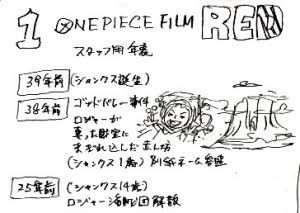 1 ONE PIECE FILM RED
スタッフ用年表
39年前 (シャンクス誕生)
38年前 ゴッドバレー事件
ロジャーが
奪った財宝に
まぎれ込んだ赤ん坊
(シャンクス1歳) 別紙ネーム参照
25年前 (シャンクス14歳)
ロジャー海賊団解散